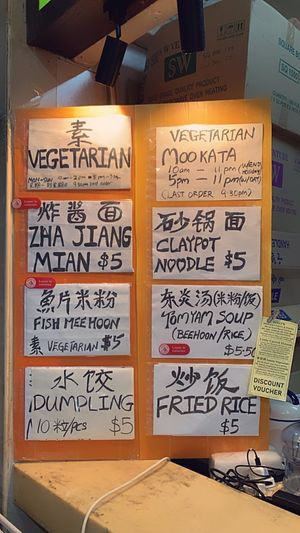 素
VEGETARIAN
炸酱面
ZHA JIANG
MIAN $5
魚片米粉
FISH MEE HOON
素 VEGETARIAN $5
水饺
DUMPLING
10粒/PCS $5
VEGETARIAN
MOOKATA
10am – 11pm
5pm – 11pm
(LAST ORDER 9:30pm)
砂锅面
CLAYPOT
NOODLE $5
东炎汤(米粉/饭)
TOMYAM SOUP
(BEEHOON/RICE)
$5.50
炒饭
FRIED RICE
$5
DISCOUNT
VOUCHER
SW